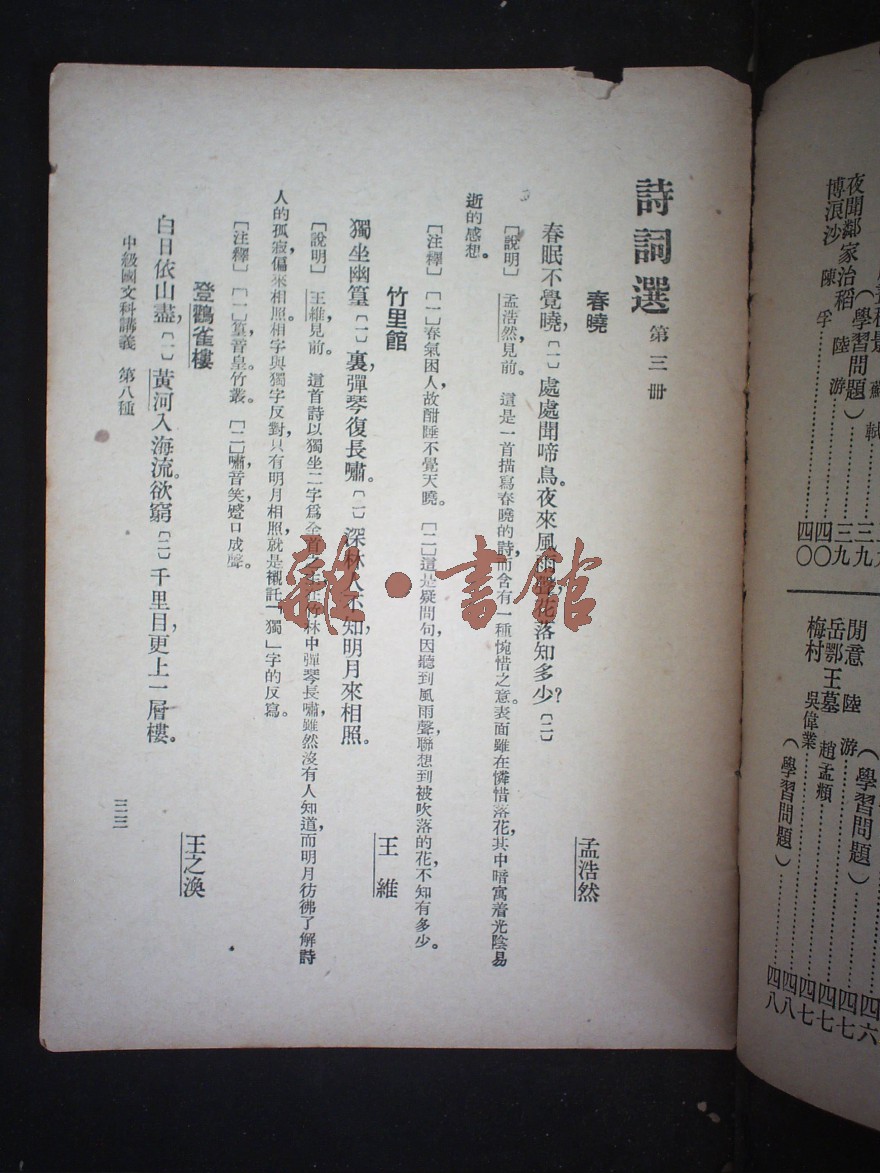 （學習問題）……三九
夜聞鄰家治稻 陸游……三九
博浪沙 陳孚……四〇
（學習問題）……四七
閒意 陸游……四七
岳鄂王墓 趙孟頫……四七
梅村 吳偉業……四八
（學習問題）……四八
詩詞選 第三冊
春曉 孟浩然
春眠不覺曉，〔一〕處處聞啼鳥。夜來風雨聲，花落知多少？〔二〕
〔說明〕孟浩然見前。 這是一首描寫春曉的詩，而含有一種惋惜之意。表面雖在憐惜落花，其中暗寓着光陰易
逝的感想。
〔注釋〕〔一〕春氣困人，故酣睡不覺天曉。 〔二〕這是疑問句，因聽到風雨聲，聯想到被吹落的花，不知有多少。
竹里館 王維
獨坐幽篁〔一〕裏，彈琴復長嘯。〔二〕深林人不知，明月來相照。
〔說明〕王維見前。 這首詩以獨坐二字爲全首之主，在竹林中彈琴長嘯，雖然沒有人知道，而明月彷彿了解詩
人的孤寂，偏來相照。相字與獨字反對，只有明月相照，就是襯託「獨」字的反寫。
〔注釋〕〔一〕篁音皇，竹叢。 〔二〕嘯音笑，蹙口成聲。
登鸛雀樓 王之渙
白日依山盡，〔一〕黃河入海流。欲窮〔二〕千里目，更上一層樓。
中級國文科講義 第八種 三三
雜·書館